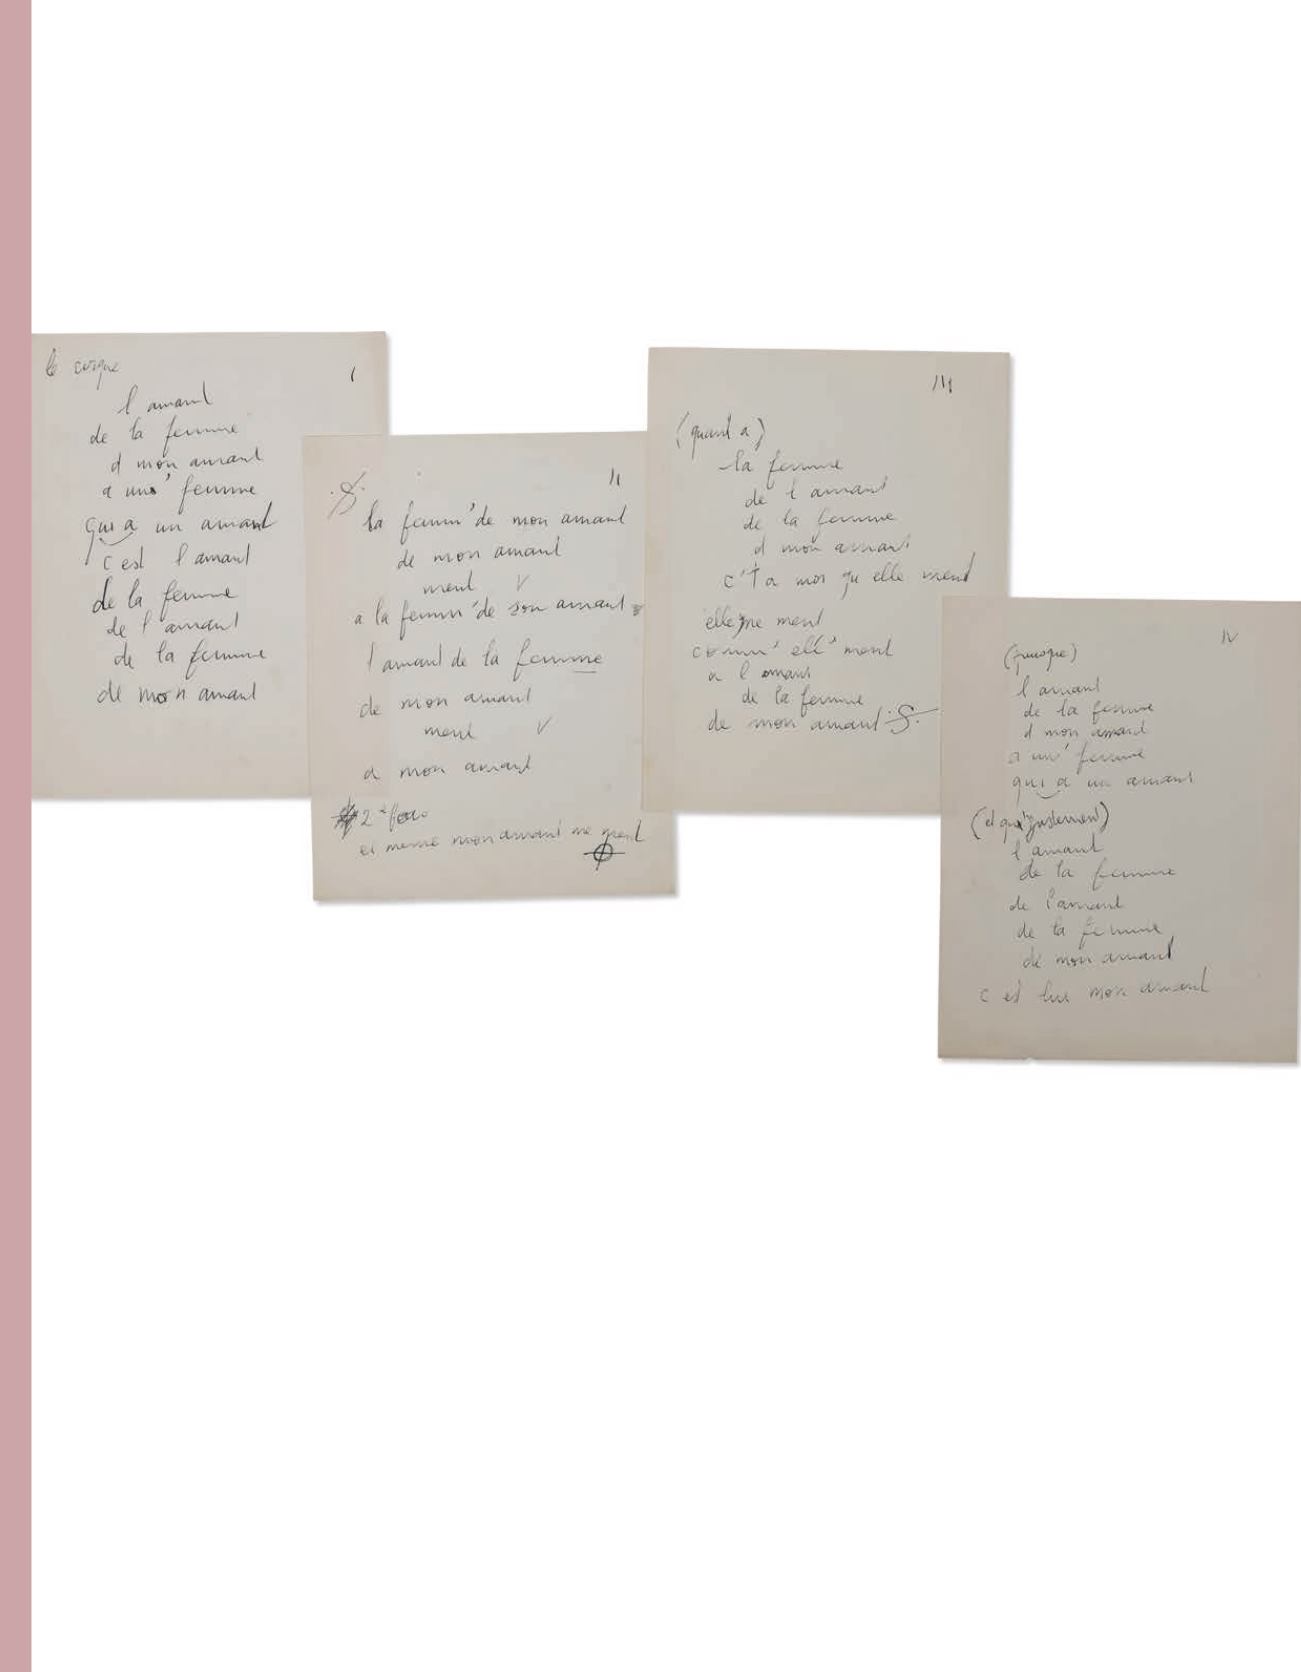 le cirque
I
l'amant
de la femme
d mon amant
a un' femme
qui a un amant
c est l amant
de la femme
de l'amant
de la femme
de mon amant
II
la femm' de mon amant
de mon amant
ment V
a la femm' de son amant
l amant de la femme
de mon amant
ment V
a mon amant
2e fois
et meme mon amant me ment
III
(quant a)
la femme
de l amant
de la femme
d mon amant
c't a moi qu elle ment
elle me ment
comm' ell' ment
a l amant
de la femme
de mon amant
IV
(puisque)
l amant
de la femme
d mon amant
a un' femme
qui a un amant
(et qu' justement)
l amant
de la femme
de l'amant
de la femme
de mon amant
c est lui mon amant